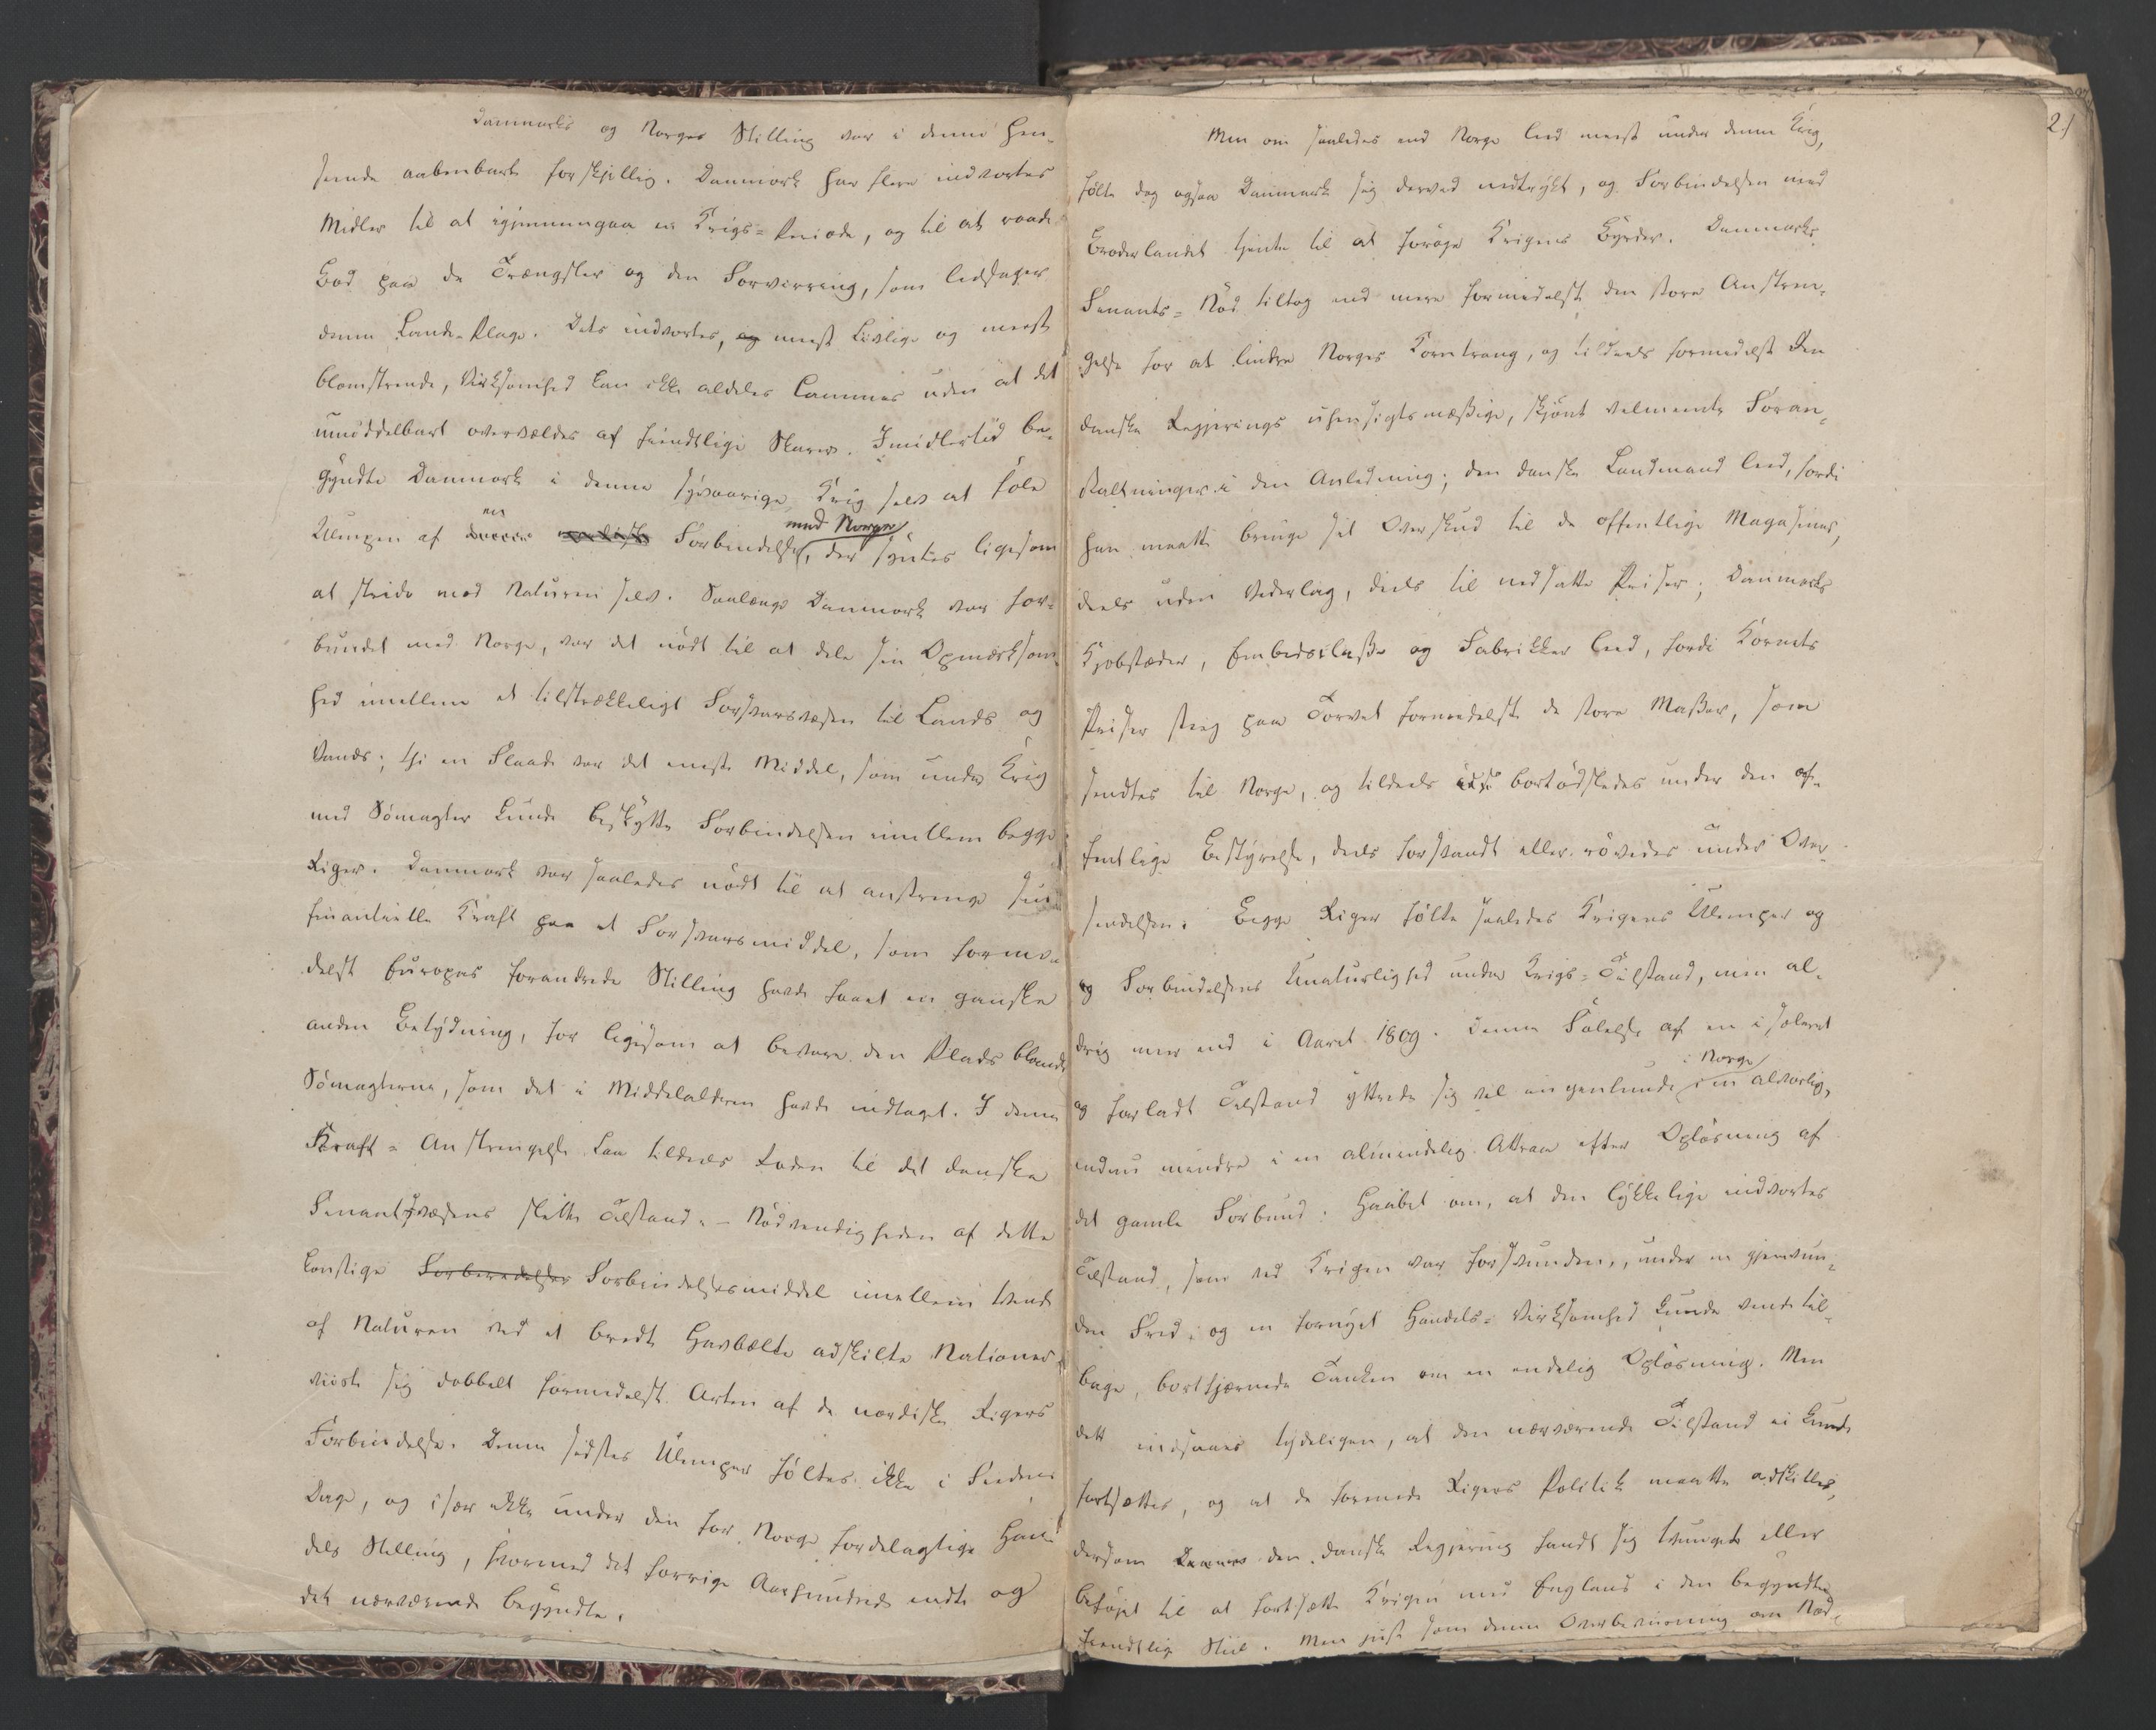 Danmarks og Norges Stilling var i denne Hen-
seende aabenbart forskjellig. Danmark har flere indvortes
Midler til at igjennemgaa en Krigs-Periode, og til at raade
Bod paa de Trængsler og den Forvirring, som ledsager
denne Lande-Plage. Dets indvortes, og meest Livlige og meest
blomstrende, Virksomhed kan ikke aldeles lammes uden at det
umiddelbart overvældes af fiendtlige Skarer. Imidlertid be-
gyndte Danmark i denne syvaarige Krig selv at føle
en med Norge
Ulempen af Forbindelse, der syntes ligesom
at stride mod Naturen selv. Saalænge Danmark var for-
bundet med Norge, var det nødt til at dele sin Opmærksom-
hed imellem et tilstrækkeligt Forsvarsvæsen til Lands og
Vands; thi en Flaade var det eneste Middel, som under Krig
med Sömagter kunde beskytte Forbindelsen imellem begge
Riger. Danmark var saaledes nödt til at anstrenge sin
finantielle Kraft paa et Forsvarsmiddel, som forme-
delst Europas forandrede Stilling havde faaet en ganske
anden Betydning, for ligesom at bevare den Plads blandt
Sömagterne, som det i Middelalderen havde indtaget. I denne
Kraft-Anstrengelse laa tildeels Roden til det danske
Finantsvæsens slette Tilstand. - Nödvendigheden af dette
konstige Forberedelses Forbindelsesmiddel imellem tvende
af Naturen ved et bredt Havbælte adskilte Nationer
viiste sig dobbelt formedelst Arten af de nordiske Rigers
Forbindelse. Denne sidstes Ulemper föltes ikke i Fredens
Dage, og især ikke under den for Norge fordelagtige Han-
dels Stilling, hvormed det forrige Aarhundrede endte og
det nærværende begyndte.
2.)
Men om saaledes end Norge leed meest under denne Krig,
følte dog ogsaa Danmark sig derved nedtrykt, og Forbindelsen med
Broderlandet tjente til at foröge Krigens Byrder. Danmarks
Finants-Nöd tiltog end mere formedelst den store Anstren-
gelse for at lindre Norges Korntrang, og tildeels formedelst den
danske Regjerings uhensigtsmæssige, skjönt velmeente Foran-
staltninger i den Anledning; den danske Landmand leed, fordi
han maatte bringe sit Overskud til de offentlige Magasiner,
deels uden Vederlag, deels til nedsatte Priser; Danmarks
Kjøbstæder, Embedsklasse og Fabrikker leed, fordi Kornets
Priser steeg paa Torvet formedelst de store Masser, som
sendtes til Norge, og tildeels bortödsledes under den of-
fentlige Bestyrelse, deels forsvandt eller rövedes under Over-
sendelsen. Begge Riger fölte saaledes Krigens Ulemper og
og Forbindelsens Unaturlighed under Krigs-Tilstand, men al-
drig mere end i Aaret 1809. Denne Følelse af en isoleret
i Norge
og forladt Tilstand yttrede sig vel ingenlunde i en alvorlig,
endnu mindre i en almindelig Attraa efter Oplösning af
det gamle Forbund. Haabet om, at den lykkelige indvortes
Tilstand, som ved Krigen var forsvunden, under en gjenvun-
den Fred, og en fornyet Handels-Virksomhed kunde vende til-
bage, bortfjernede Tanken om en endelig Oplösning. Men
dette indsaaes tydeligen, at den nærværende Tilstand ei kunde
fortsættes, og at de forenede Rigers Politik maatte adskilles,
dersom den danske Regjering fandt sig tvungen eller
beföiet til at fortsætte Krigen med England i den begyndte
fiendtlige Stiil. Men just som denne Overbeviisning om Nöd-